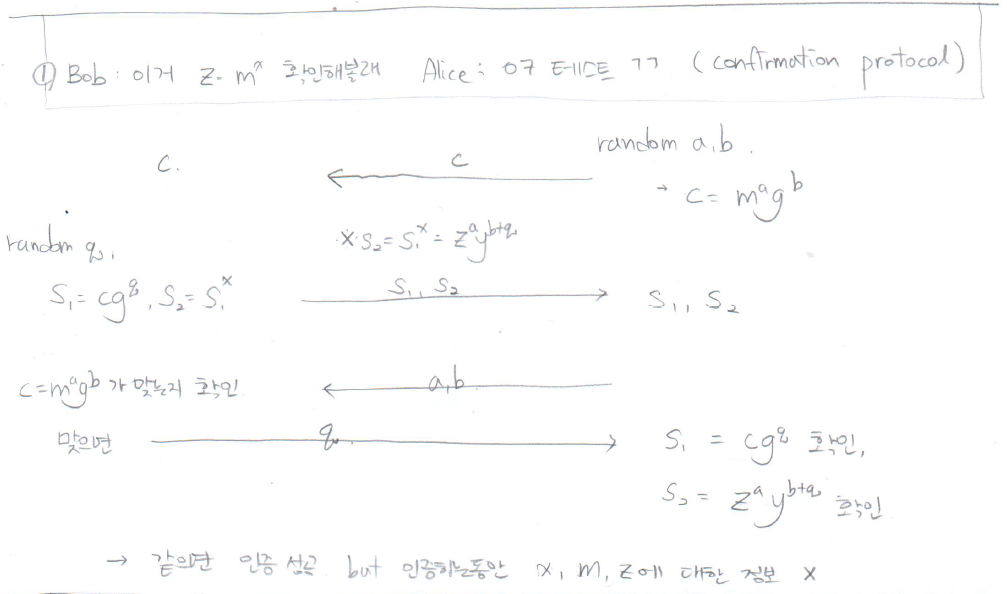 ① Bob : 이거 z = m^x 확인해볼래 Alice : ㅇㅋ 테스트 ㄱㄱ (confirmation protocol)
random a, b.
C. ← C
→ C = m^a g^b
random q,
·x· S₂ = S₁^x = z^a y^{b+q}
S₁ = cg^q, S₂ = S₁^x → S₁, S₂ S₁, S₂
C = m^a g^b 가 맞는지 확인 ← a, b
맞으면 → q S₁ = cg^q 확인,
S₂ = z^a y^{b+q} 확인
→ 같으면 인증 성공 but 인증하는동안 x, m, z에 대한 정보 X